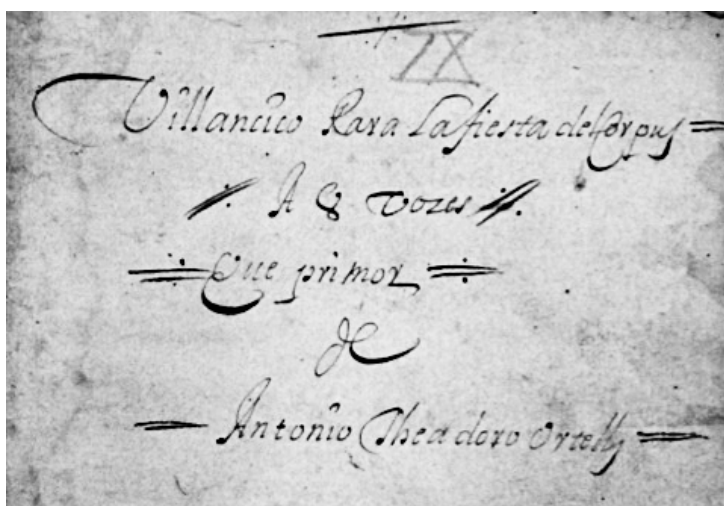 Villancico Para La fiesta del Corpus
A 8 vozes
Que primor
de
Antonio Theadoro Ortells